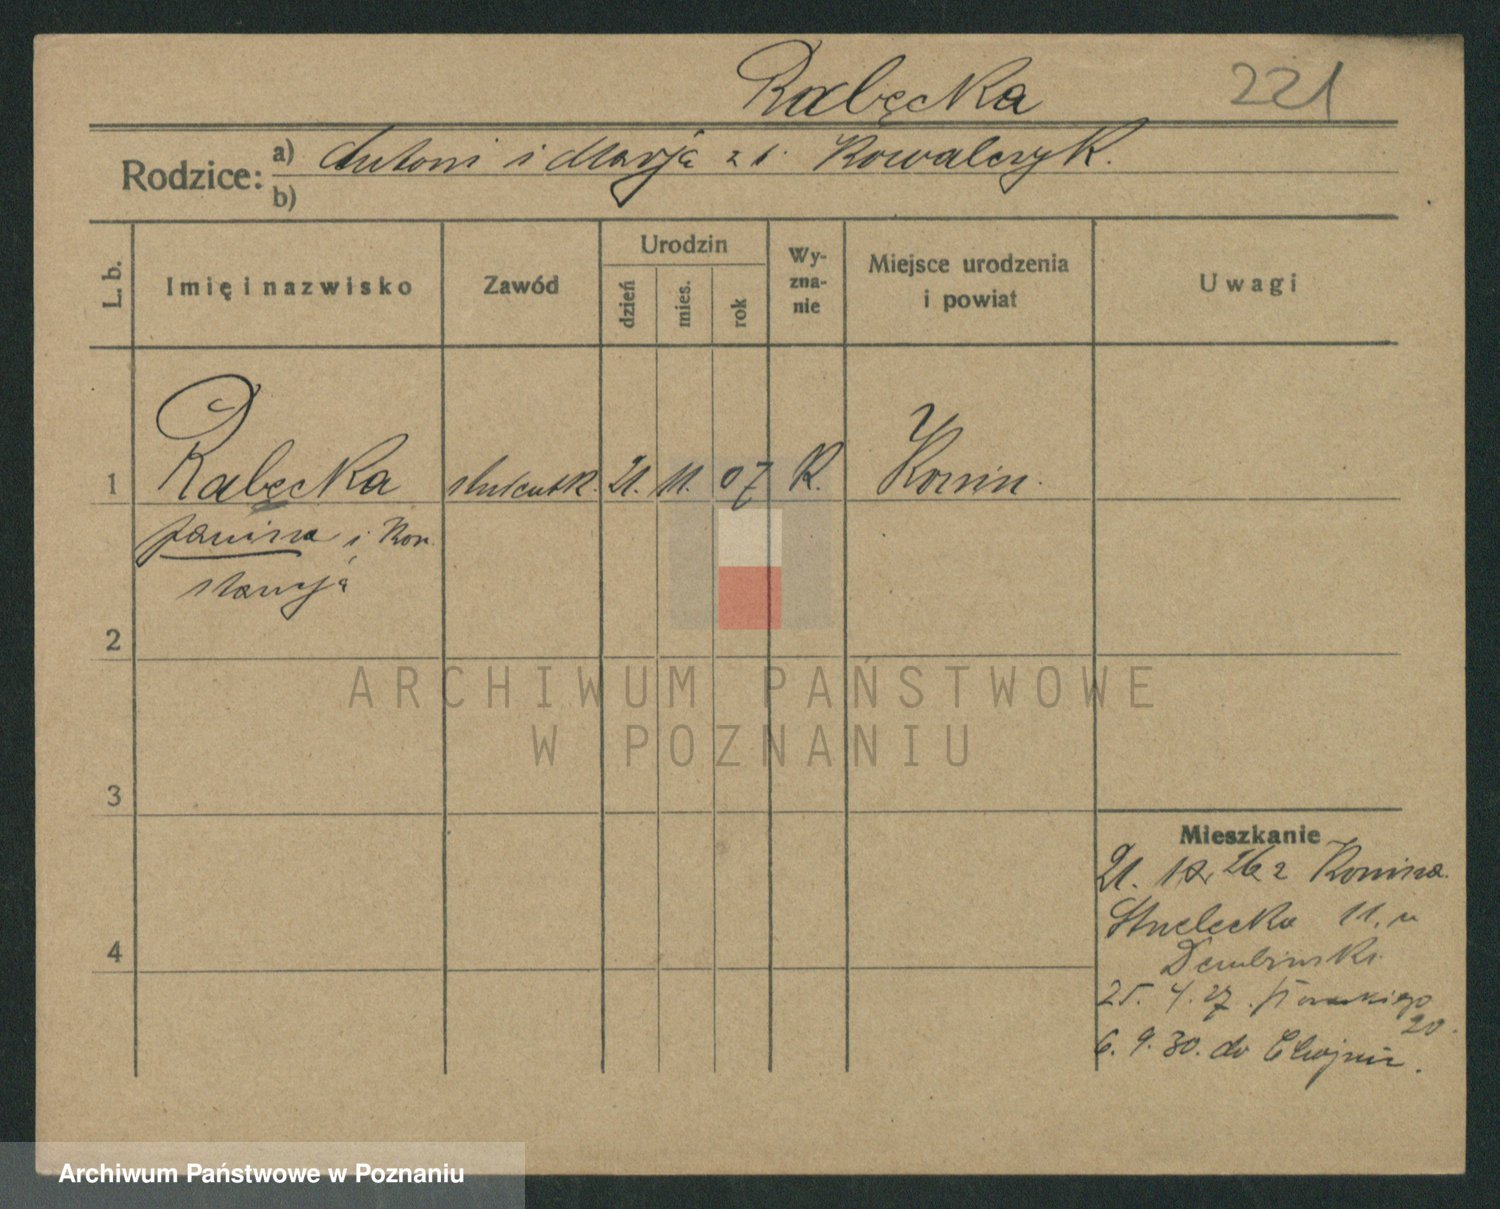 Rabęcka 221
Rodzice: a) Antoni i Marja z d. Kowalczyk.
b)
L. b. Imię i nazwisko Zawód Urodzin dzień mies. rok Wyznanie Miejsce urodzenia i powiat Uwagi
1 Rabęcka studentk. 21. 11. 07 R. Konin.
Janina i Kon
stancja
2
ARCHIWUM PAŃSTWOWE
W POZNANIU
3
Mieszkanie
21. 12. 26 z Konina.
Strzelecka 11. u
4
Dembinski
25. 4. 27.
20.
6. 9. 30. do Chojnic.
Archiwum Państwowe w Poznaniu